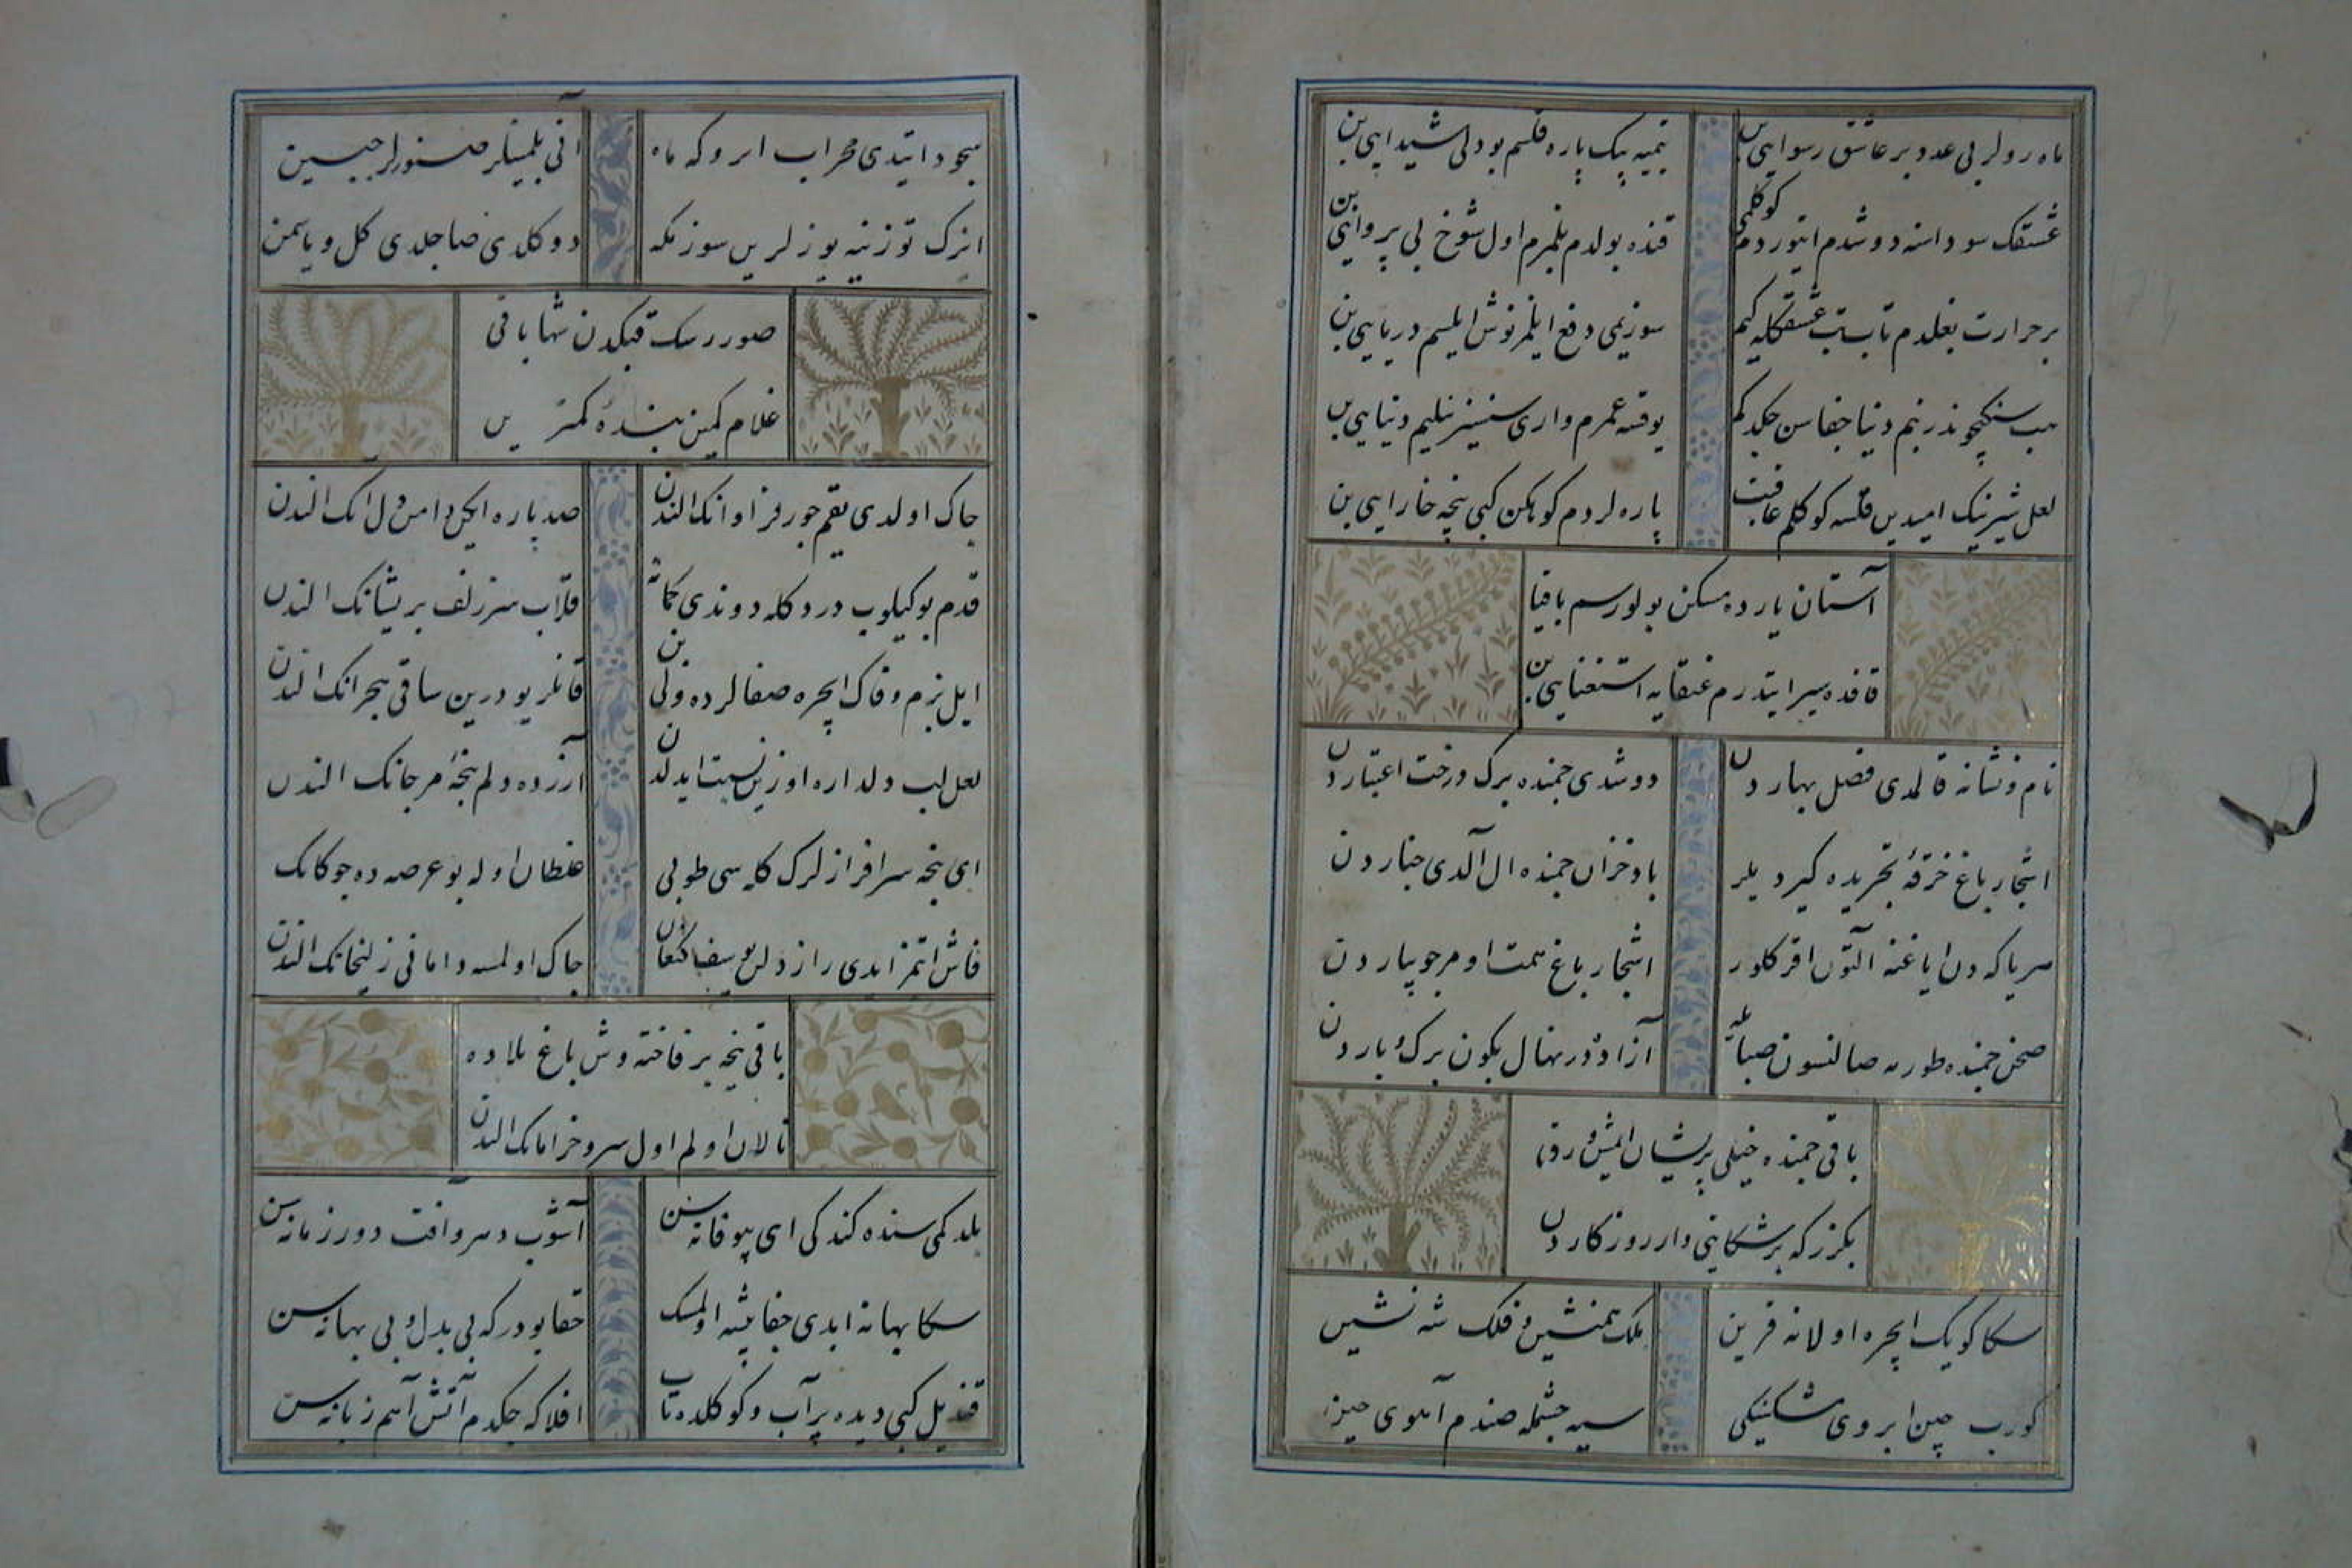 ماه رولر بی عدد بر عاشق رسوایی بن
نیمیه بیک پاره قلسم بو دلی شیدایی بن
عشقک سوداسنه دوشدم ایتوردم کوکلمی
قنده بولدم بلمرم اول شوخ بی پروایی بن
بر حرارت بغلدم تاب تب عشقکله کیم
سوزیمی دفع ایلمز نوش ایلسم دریایی بن
هب سنکیچوندر بنم دنیا جفاسن چکدکم
یوقسه عمرم واری سنسز نیلیم دنیایی بن
لعل شیرینک امیدین قلسه کوکلم عاقبت
پاره لردم کوهکن کبی نیجه خارایی بن
آستان یارده مسکن بولورسم باقیا
قافده سیر ایتدرم عنقایه استغنایی بن
نام و نشانه قالمدی فصل بهاردن
دوشدی چمنده برک درخت اعتباردن
اشجار باغ خرقهٔ تجریده کیردیلر
باد خزان چمنده ال آلدی چناردن
هر یاکه دن ایاغنه آلتون اقر کلور
اشجار باغ همت اومر جویباردن
صحن چمنده طورمه صالنسون صبا ایله
آزاده در نهال بکون برک و باردن
باقی چمنده خیلی پریشان ایمش ورق
بکزر که بر شکایتی وار روزکاردن
سکا کویک ایچره اولانه قرین
ملک همنشین و فلک شه نشین
کورب چین ابروی مشکینکی
سیه چشمله صندم آهوی چین
سجود ایتدی محراب ابروکه ماه
آنی بلمینلر صنورلر جبین
ایزک توزینه یوزلرین سوزمکه
دوکلدی صاجلدی کل و یاسمن
صوررسک قپکدن شها باقی
غلام کمین بندهٔ کمترین
چاک اولدی یقم جور فراوانک الندن
صد پاره ایکن دامن دل انک الندن
قدم بوکیلوب دردکله دوندی کمانه
قلاب سر زلف پریشانک الندن
ایل بزم وفاک ایچره صفالرده ولی بن
قانلر یودرین ساقی هجرانک الندن
لعل لب دلداره اوزین نسبت ایدلدن
آزرده دلم پنجهٔ مرجانک الندن
ای نیجه سرافرازلرک کله سی طوبی
غلطان اوله بو عرصه ده چوکانک
فاش اتمز ایدی راز دلن یوسف کنعان
چاک اولمسه دامانی زلیخانک الندن
باقی نیجه بر فاخته وش باغ بلاده
نالان اولم اول سرو خرامانک الندن
بلدکمی سنده کندکی ای بیوفا نه سن
آشوب دهر و آفت دور زمانه سن
سکا بهانه ایدی جفا پیشه اولمسک
حقا بودر که بی بدل و بی بهانه سن
قندیل کبی دیده پر آب و کوکلده تاب
افلاکه چکدم آتش آهم زبانه سن